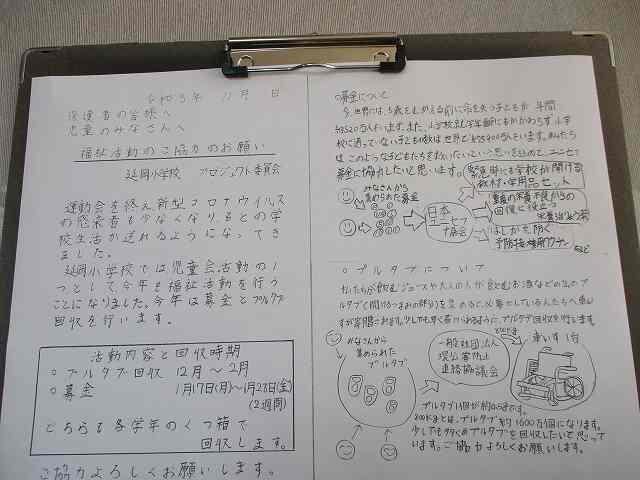 令和3年 11月 日
保護者の皆様へ
児童のみなさんへ
福祉活動のご協力のお願い
延岡小学校 プロジェクト委員会
運動会を終え新型コロナウイルス
の感染者も少なくなり、もとの学
校生活が送れるようになってき
ました。
延岡小学校では児童会活動の1
つとして今年も福祉活動を行う
ことになりました。今年は募金とプルタブ
回収を行います。
活動内容と回収時期
○プルタブ回収 12月〜2月
○募金 1月17日(月)〜1月28日(金)
(2週間)
どちらも各学年のくつ箱で
回収します。
ご協力よろしくお願いします。
○募金について
今、世界には、5歳をむかえる前に命を失う子どもが年間
約520万人います。また、小学校就学年齢にもかかわらず、小学
校に通っていない子どもの数は世界で約5900万人います。私たち
は、このような子どもたちを救いたいという思いを込めて、ユニセフ
募金に協力したいと思います。
みなさんから
集められた募金
日本
ユニセフ
協会
緊急時にも学校が開ける
教材・学用品セット
重度の栄養不良からの
回復に役立つ
栄養治療
はしかを防ぐ
予防接種用ワクチン
など
○プルタブについて
プルタブ(開けるつまみの部分)を集めると、必要としている人たちへ車いす
みなさんから
集められた
プルタブ
一般社団法人
環公害防止
連絡協議会
車いす1台
プルタブ1個が約0.5gです。
800kgとは、プルタブ約1600万個になります。
少しでも多くのプルタブを回収したいと思って
います。ご協力よろしくお願いします。